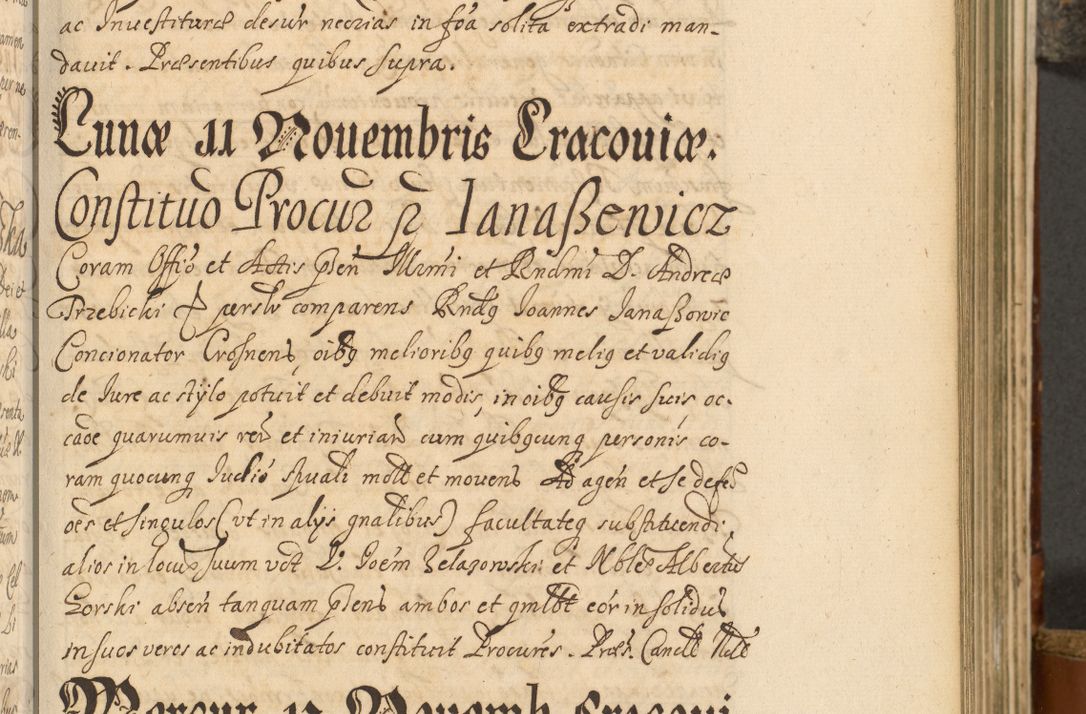 ac Inuestituræ desur necrias in fõa solita extradi man-
dauit. Præsentibus quibus supra.
Lunæ 11 Nouembris Cracouiæ.
Constituõ Procur p Ianaßewicz
Coram Offiõ et Actis pñtn Illrmi et Rndmi D. Andreæ
Trzebicki persłr comparens Rndq Ioannes Ianaßowic
Concionator Crosnens, oibq melioribq quibq meliq et validiq
de Iure ac stylo potuit et debuit modis, in oibq causis suis oc-
caõe quarumuis rer et iniuriar cum quibqcunq personis co-
ram quocunq Iudiõ spuali mõtt et mouens Ad agen et se defen
oẽs et singulos (vt in alijs gnalibus) facultateq substituendi
alios in locum suum vdt D. Joẽm Zelazowski et Nble Albertũ
Gorski absen tanquam pñtens ambos et qmlbt eõr in solidum
in suos veros ac indubitatos constituit Procures. Præs. Cancell
Mercur 13 Nouemb Cracoui